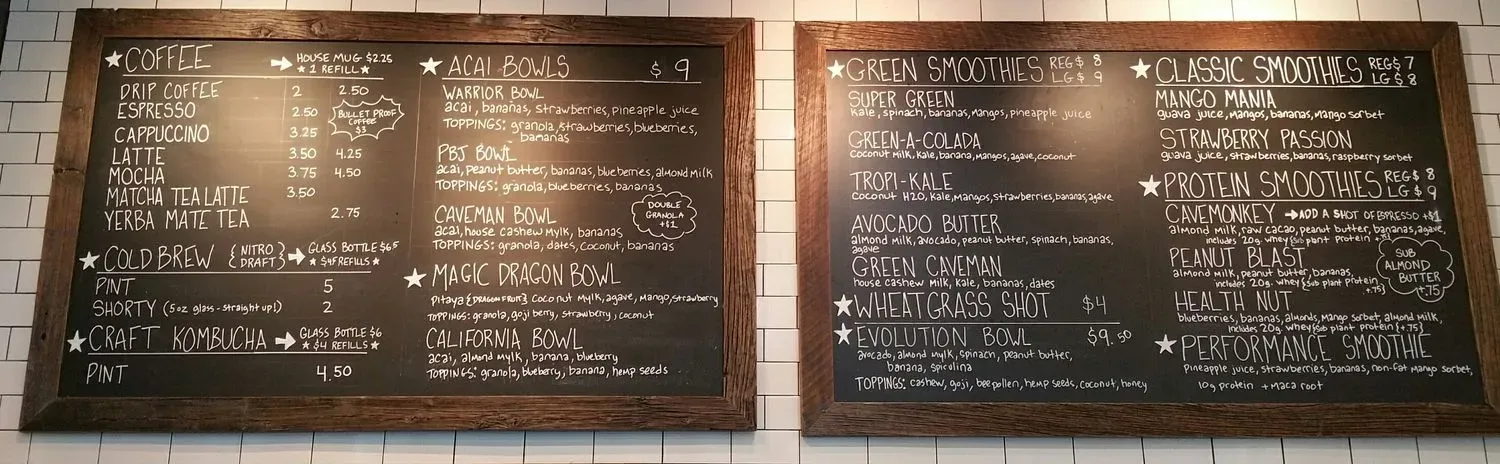 ★ COFFEE → HOUSE MUG $2.25
★ 1 REFILL ★
DRIP COFFEE 2 2.50
ESPRESSO 2.50
BULLET PROOF
COFFEE
$3
CAPPUCCINO 3.25
LATTE 3.50 4.25
MOCHA 3.75 4.50
MATCHA TEA LATTE 3.50
YERBA MATE TEA 2.75
★ COLD BREW {NITRO DRAFT} → GLASS BOTTLE $6.5
★ $4 REFILLS ★
PINT 5
SHORTY (5oz glass - straight up!) 2
★ CRAFT KOMBUCHA → GLASS BOTTLE $6
★ $4 REFILLS ★
PINT 4.50
★ ACAI BOWLS $9
WARRIOR BOWL
acai, bananas, strawberries, pineapple juice
TOPPINGS: granola, strawberries, blueberries,
bananas
PBJ BOWL
acai, peanut butter, bananas, blueberries, almond milk
TOPPINGS: granola, blueberries, bananas
DOUBLE
GRANOLA
+$1
CAVEMAN BOWL
acai, house cashew mylk, bananas
TOPPINGS: granola, dates, coconut, bananas
★ MAGIC DRAGON BOWL
Pitaya {DRAGON FRUIT} coconut mylk, agave, mango, strawberry
TOPPINGS: granola, goji berry, strawberry, coconut
CALIFORNIA BOWL
acai, almond mylk, banana, blueberry
TOPPINGS: granola, blueberry, banana, hemp seeds
★ GREEN SMOOTHIES REG $ 8
LG $ 9
SUPER GREEN
kale, spinach, bananas, mangos, pineapple juice
GREEN-A-COLADA
coconut milk, kale, banana, mangos, agave, coconut
TROPI-KALE
coconut H2O, kale, mangos, strawberries, bananas, agave
AVOCADO BUTTER
almond milk, avocado, peanut butter, spinach, bananas,
agave
GREEN CAVEMAN
house cashew milk, kale, bananas, dates
★ WHEATGRASS SHOT $4
★ EVOLUTION BOWL $9.50
avocado, almond mylk, spinach, peanut butter,
banana, spirulina
TOPPINGS: cashew, goji, bee pollen, hemp seeds, coconut, honey
★ CLASSIC SMOOTHIES REG $ 7
LG $ 8
MANGO MANIA
guava juice, mangos, bananas, mango sorbet
STRAWBERRY PASSION
guava juice, strawberries, bananas, raspberry sorbet
★ PROTEIN SMOOTHIES REG $ 8
LG $ 9
CAVEMONKEY → ADD A SHOT OF ESPRESSO +$1
almond milk, raw cacao, peanut butter, bananas, agave,
includes 20g. whey {sub plant protein
PEANUT BLAST
almond milk, peanut butter, bananas,
includes 20g. whey {sub plant protein
+.75}
SUB
ALMOND
BUTTER
+.75
HEALTH NUT
blueberries, bananas, almonds, mango sorbet, almond milk,
includes 20g. whey {sub plant protein {+.75}
★ PERFORMANCE SMOOTHIE
Pineapple juice, strawberries, bananas, non-fat mango sorbet,
10g protein + maca root